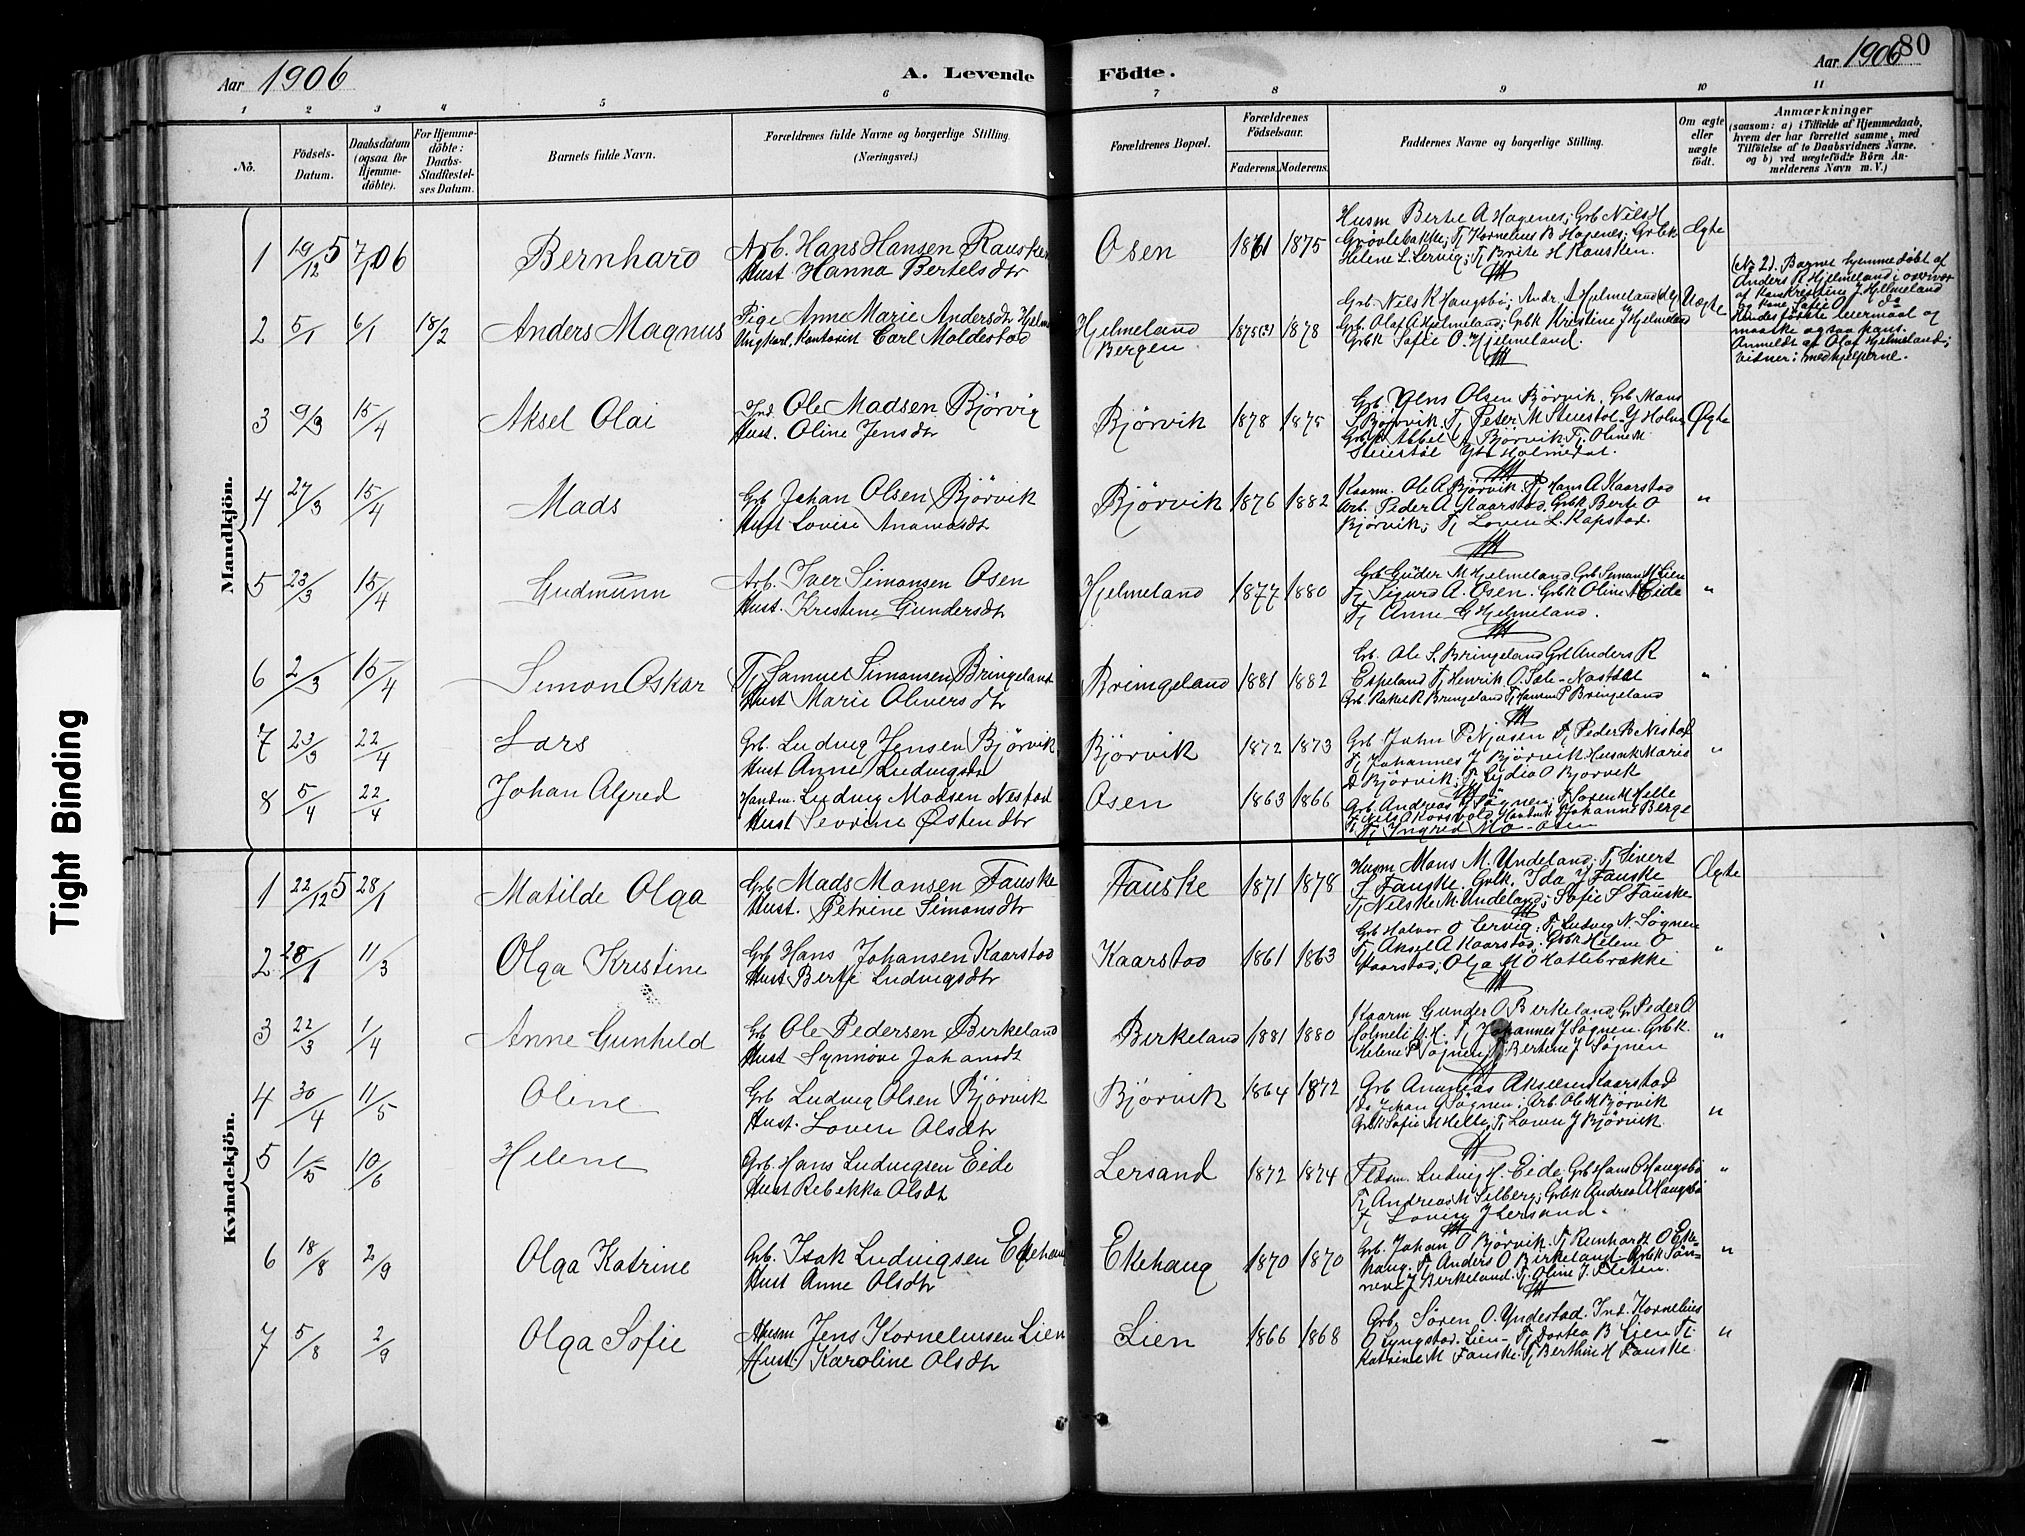 Aar 1906
A. Levende
Födte.
Aar 1906
80
1 2 3 4 5 6 7 8 9 10 11
No.
Födsels-
Datum.
Daabsdatum
(ogsaa for
Hjemme-
döbte).
For Hjemme-
döbte:
Daabs-
Stadfæstel-
ses Datum.
Barnets fulde Navn.
Forældrenes fulde Navne og borgerlige Stilling.
(Næringsvei.)
Forældrenes Bopæl.
Forældrenes
Födselsaar.
Faderens. Moderens.
Faddernes Navne og borgerlige Stilling.
Om ægte
eller
uægte
födt.
Anmærkninger
(saasom: a) i Tilfælde af Hjemmedaab,
hvem der har forrettet samme, med
Tilföielse af to Daabsvidners Navne,
og b) ved uægtefödte Börn An-
melderens Navn m.V.)
Mandkjön.
1 19/12 5 7/1 06 Bernhard
Arb. Hans Hansen Rausken
Hust. Hanna Bertelsdtr
Osen 1861 1875
Husm Bertel A Hagenes; Grb Nils H
Grövlebakke; Tj Kornelius B Hagenes; Grbk
Helene L. Lervig; Tj Brite H Rausken.
Ægte
2 5/1 6/1 18/2 Anders Magnus
Pige Anne Marie Andersdtr Hjelm
Ungkarl, Kontorist Carl Moldestad
Hjelmeland
Bergen
1875(3) 1878
Grb. Nils K Haugsbø; Andr. A Hjelmeland
Grb. Olaf A Hjelmeland; Grbk Kristine J Hjelmeland
Grbk Sofie O. Hjelmeland.
Uægte
(No 2). Barnet hjemmedöbt af
Anders R Hjelmeland i overvær
af Kone Kristine J Hjelmeland
og Kone Sofie O do
Hendes første leiermaal og
maaske ogsaa hans.
Anmeldt af Olaf Hjelmeland;
vidner: medhjelperne.
3 9/3 15/4 Aksel Olai
Ind. Ole Madsen Björvig
Hust. Oline Jensdtr
Björvik 1878 1875
Grb Jens Olsen Björvik. Grb Mons
S Björvik. Tj Peter M Steiestøl Y Holm
Grbk Abbel A Björvik Tj. Oline M
Steiestöl Ytre Holmedal.
Ægte
4 27/3 15/4 Mads
Grb Johan Olsen Björvik
Hust Lovise Ananiasdt
Björvik 1876 1882
Kaarm. Ole A Björvik. Tj Hans A Kaarstad
Arb. Peder A Kaarstad. Grbk Berte O
Björvik; Tj Lovise L. Kapstad.
"
5 23/3 15/4 Gudmunn
Arb. Iver Simonsen Osen
Hust. Kristine Gundersdtr
Hjelmeland 1877 1880
Grb Guder M Hjelmeland. Grb Simon M Lien
Tj Sigurd A. Osen. Grbk Oline N Eide
Tj Anne G Hjelmeland.
"
6 2/3 15/4 Simon Oskar
Tj Samuel Simonsen Bringeland
Hust Marie Oliversdtr
Bringeland 1881 1882
Grb. Ole S. Bringeland Grb Anders R
Espeland Tj Henrik O. Sæle - Naustdal
Grb. Rakel R Bringeland Tj Hansine P Bringeland
"
7 23/3 22/4 Lars
Grb. Ludvig Jensen Björvik
Hust Anne Ludvigsdtr
Björvik 1872 1873
Grb John P Njøsen Tj Peder B Nistad
Tj Johannes J Björvik Husmk Marie
D Björvik; Tj Lydia O Bjorvik
"
8 5/4 22/4 Johan Alfred
Handm. Ludvig Madsen Nestad
Hust Severine Østensdtr
Osen 1863 1866
Grb Andreas J Søgnen; Tj Søren M Helle
Tj Nils A Korsvold Handmk Johanne Berge
Tj Ingred Mo - Osen
Kvindekjön.
1 22/12 5 28/1 Matilde Olga
Grb Mads Monsen Fauske
Hust. Petrine Simonsdtr
Fauske 1871 1878
Husm Mons M. Undeland; Tj Sivert
S Fauske. Grbk. Ida J Fauske
Tj Nilske M. Undeland; Sofie S Fauske
Ægte
2 28/1 11/3 Olga Kristine
Grb Hans Johansen Kaarstad
Hust Berte Ludvigsdtr
Kaarstad 1861 1863
Grb Halvor O Lervig; Tj Ludvig N. Søgnen
Tj Aksel A Kaarstad; Grbk Helene O
Kaarstad; Olga M O Hatlebrække
"
3 22/3 1/4 Anne Gunhild
Grb Ole Pedersen Birkeland
Hust Synnöve Johansdt
Birkeland 1881 1880
Kaarm Gunder O Birkeland, Gr Peder O
Holmeli Y.H. Tj Johannes J Søgnen. Grbk.
Helene P Søgnen Tj Bertine J Søgnen
"
4 30/4 11/5 Oline
Grb Ludvig Olsen Björvik
Hust. Lovise Olsdtr
Björvik 1864 1872
Grb Ananias Akselsen Kaarstad
do Johan G Søgnen; Arb. Ole M Bjørvik
Grbk Sofie M Helle; Tj Lovise J Bjørvik
"
5 1/5 10/6 Helene
Grb. Hans Ludvigsen Eide
Hust Rebekka Olsdt
Lersand 1872 1874
Pldsm. Ludvig H. Eide; Grb Hans A Haugsbø
Tj Andreas M Selberg; Grbk Andrea A Haugsbø
Tj Lovise J Lersand.
"
6 18/8 2/9 Olga Katrine
Grb. Isak Ludvigsen Ekehaug
Hust Anne Olsdtr
Ekehaug 1870 1870
Grb. Johan O Bjørvik. Tj Reinhardt O Eke-
haug. Tj Anders O Birkeland - Grbk Syn-
neve J Birkeland. Tj Oline J. Fleten.
"
7 5/8 2/9 Olga Sofie
Husm Jens Korneliusen Lien
Hust. Karoline Olsdtr
Lien 1866 1868
Grb. Søren O. Yndestad. Ind. Kornelius
O Lyngstad. Lien - Tj Dortea B Lien Tj
Katrine M Fauske. Tj Berthine H Fauske
"
Tight Binding